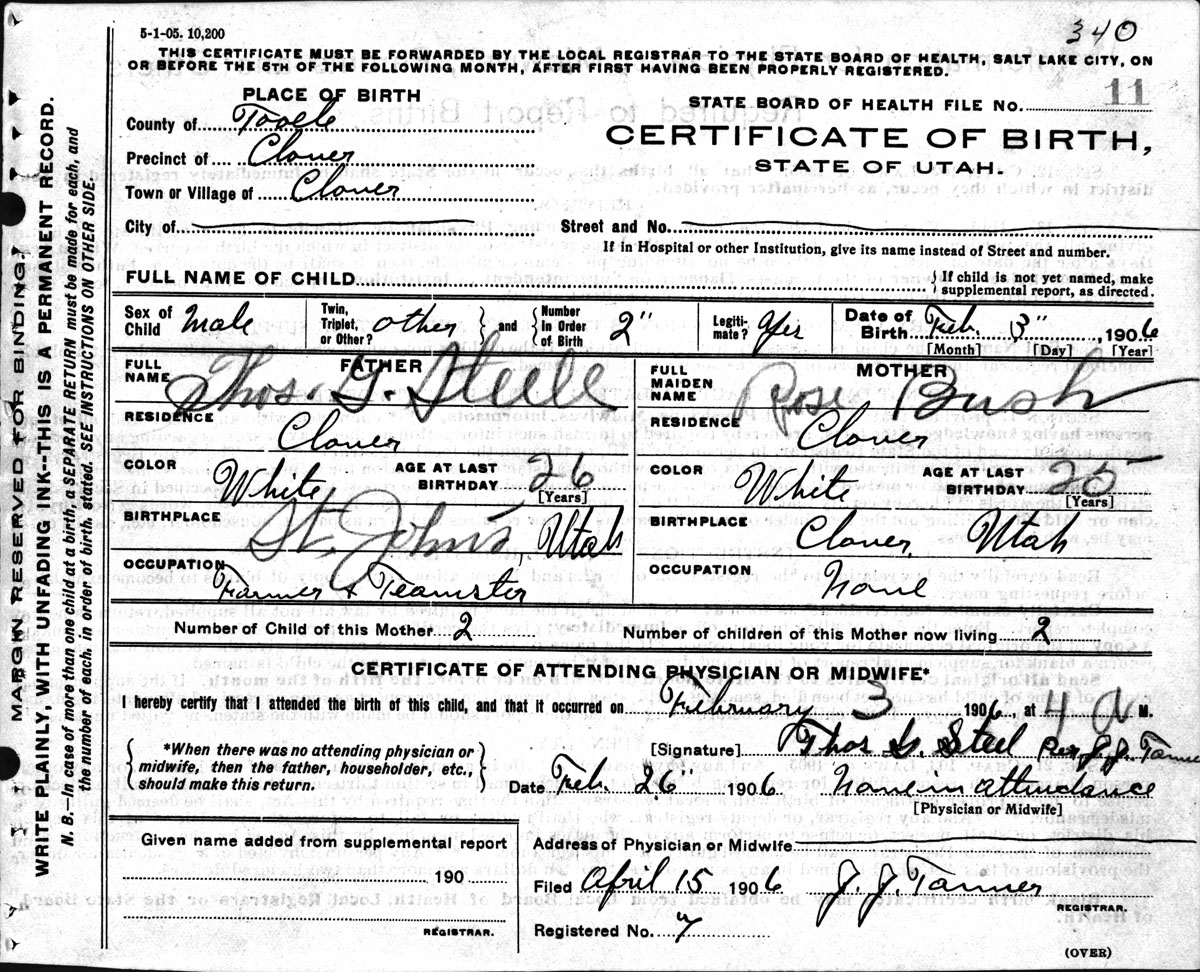 340
5-1-05. 10,200
THIS CERTIFICATE MUST BE FORWARDED BY THE LOCAL REGISTRAR TO THE STATE BOARD OF HEALTH, SALT LAKE CITY, ON
OR BEFORE THE 5TH OF THE FOLLOWING MONTH, AFTER FIRST HAVING BEEN PROPERLY REGISTERED.
MARGIN RESERVED FOR BINDING.
WRITE PLAINLY, WITH UNFADING INK--THIS IS A PERMANENT RECORD.
N. B. In case of more than one child at a birth, a SEPARATE RETURN must be made for each, and
the number of each, in order of birth, stated. SEE INSTRUCTIONS ON OTHER SIDE.
PLACE OF BIRTH
County of Tooele
Precinct of Clover
Town or Village of Clover
STATE BOARD OF HEALTH FILE No. 11
CERTIFICATE OF BIRTH,
STATE OF UTAH.
City of Street and No.
If in Hospital or other Institution, give its name instead of Street and number.
FULL NAME OF CHILD { If child is not yet named, make
supplemental report, as directed.
Sex of Child Male
Twin, Triplet, or Other? other } and { Number In Order of Birth 2"
Legitimate? Yes
Date of Birth Feb. 3", 1906
[Month] [Day] [Year]
FATHER
FULL NAME Thos. G. Steele
RESIDENCE Clover
COLOR White AGE AT LAST BIRTHDAY 26
[Years]
BIRTHPLACE St. Johns, Utah
OCCUPATION Farmer & Teamster
MOTHER
FULL MAIDEN NAME Rose Bush
RESIDENCE Clover
COLOR White AGE AT LAST BIRTHDAY 25
[Years]
BIRTHPLACE Clover, Utah
OCCUPATION None
Number of Child of this Mother 2 Number of children of this Mother now living 2
CERTIFICATE OF ATTENDING PHYSICIAN OR MIDWIFE*
I hereby certify that I attended the birth of this child, and that it occurred on February 3 1906, at 4 a M.
{ *When there was no attending physician or
midwife, then the father, householder, etc.,
should make this return. }
[Signature] Thos G. Steel per J. J. Tanner
Date Feb. 26" 1906 None in attendance
[Physician or Midwife]
Given name added from supplemental report
190
REGISTRAR.
Address of Physician or Midwife
Filed April 15 1906 J. J. Tanner
REGISTRAR.
Registered No. 7
(OVER)